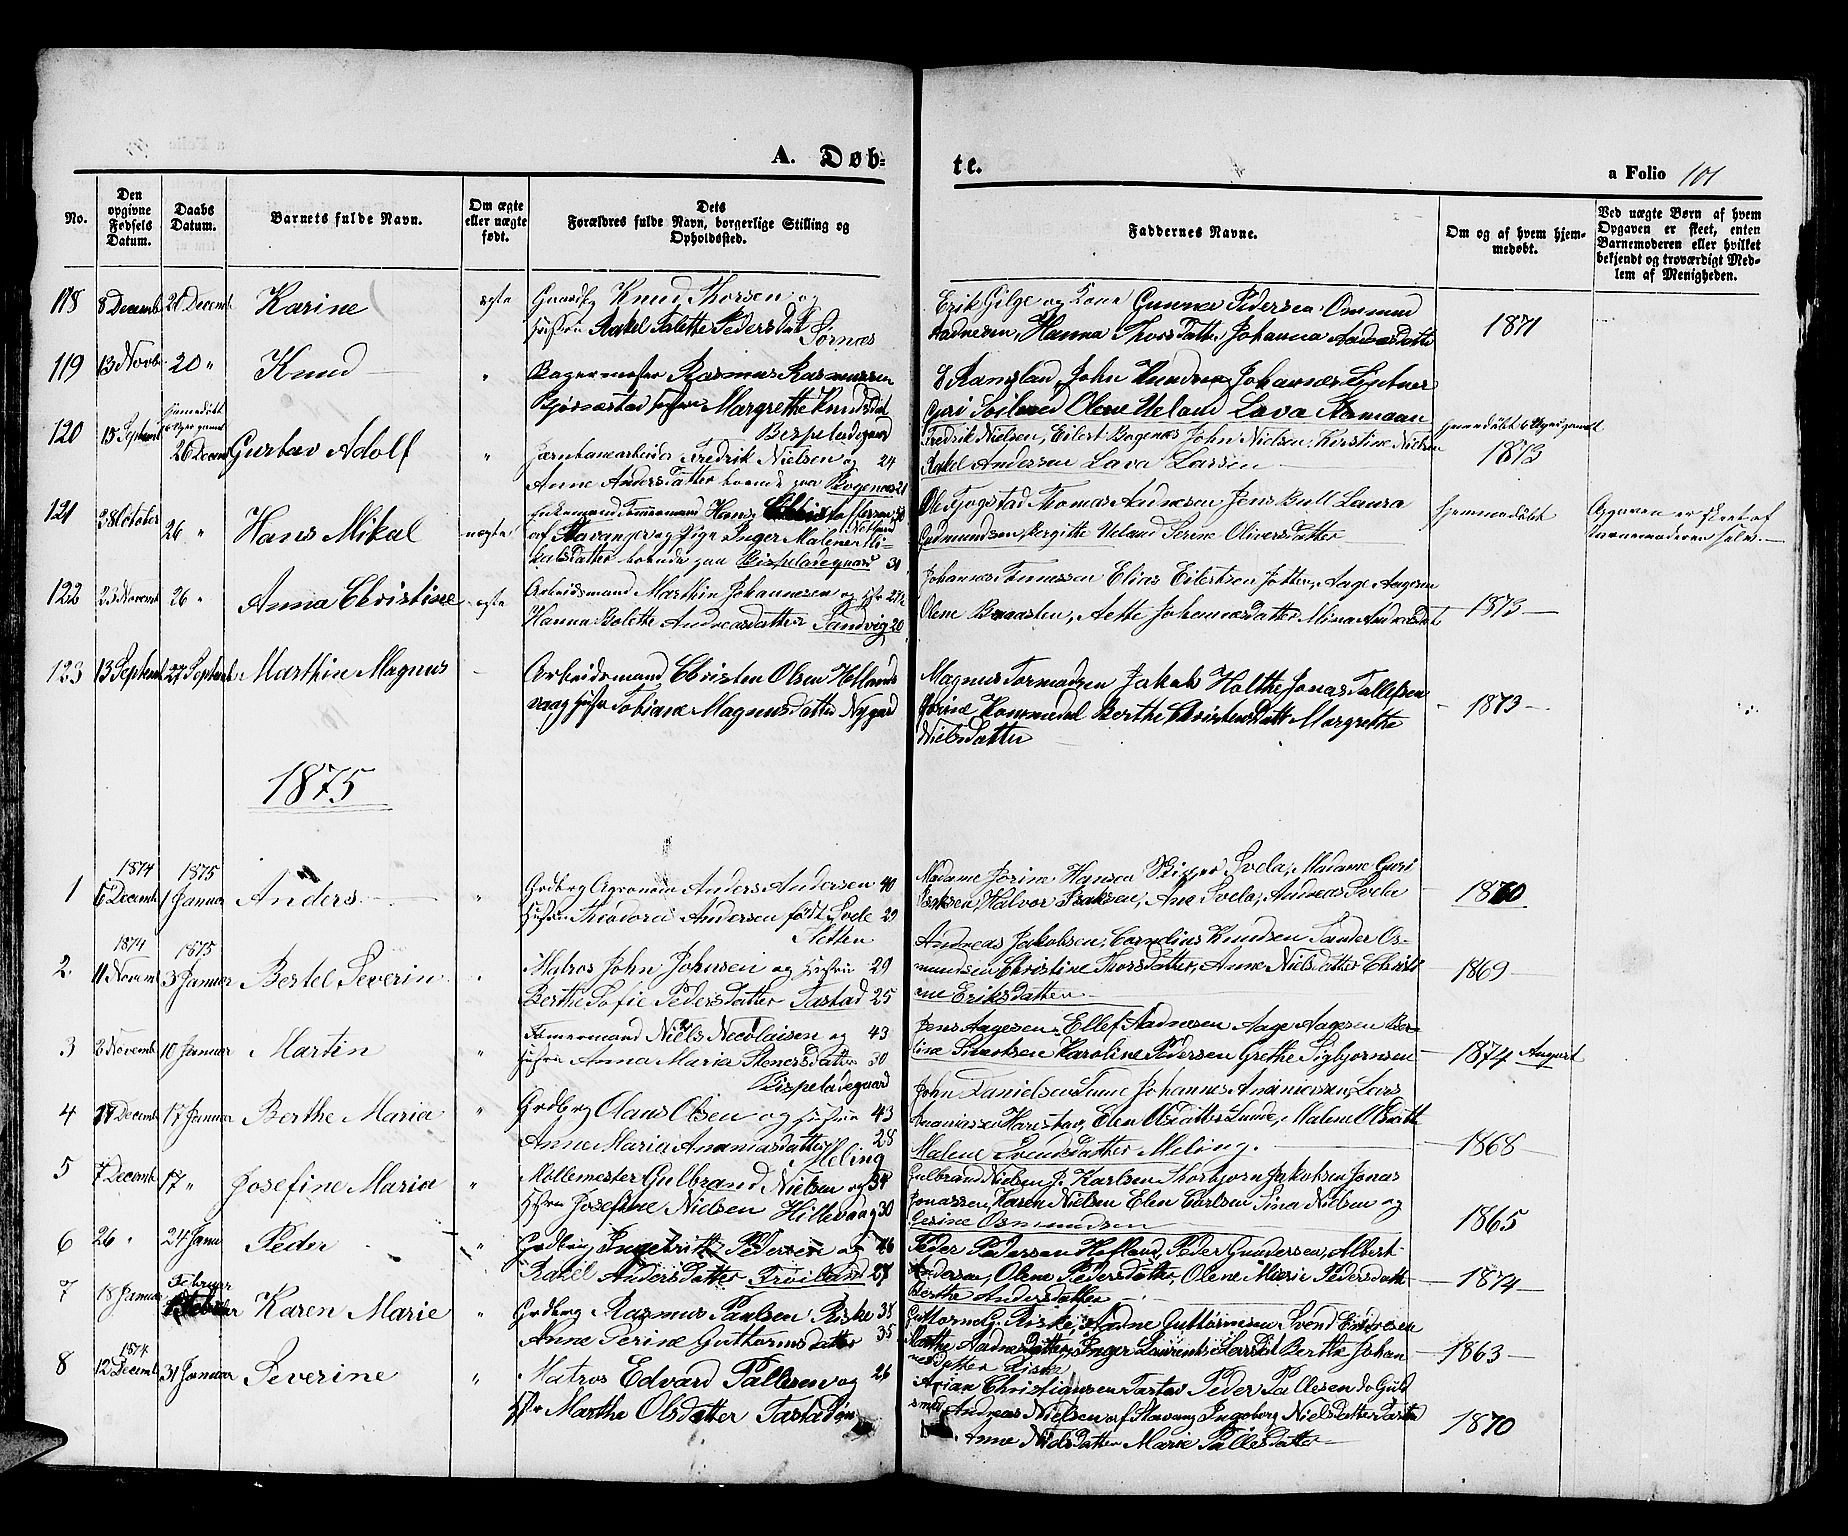 A. Døb=
te.
a Folio 101
No.
Den opgivne Fødsels Datum.
Daabs Datum.
Barnets fulde Navn.
Om ægte eller uægte født.
Dets Forældres fulde Navn, borgerlige Stilling og Opholdssted.
Faddernes Navne.
Om og af hvem hjemmedøbt.
Ved uægte Børn af hvem Opgaven er skeet, enten Barnemoderen eller hvilket bekjendt og troværdigt Medlem af Menigheden.
118 8 Decemb 20 Decemb Karine ægte Gaardbg Knud Thorsen og
Hustru Rakel Talette Pedersdatt Sørnes
Erik Gilge og Kone Gunnar Pedersen Ommund
Aadnesen, Hanna Thorsdatter Johanna Aadnesdatte
1871
119 13 Novb 20 " Knud " Bagermester Rasmus Rasmussen
Bjørnestad Hustru Margrethe Knudsdat
Bispeladegaard
Ramsland, John Knudsen Johannes
Guri Olene Ueland Lava
120 15 Septemb hjemmedøbt
26 Decemb Gustav Adolf " Jernbanearbeider Fredrik Nielsen og 24
Anne Andersdatter boende paa Bogenæs 21
Fredrik Nielsen, Eilert Bogenæs John Nielsen, Kirstine Nielsen
Rakel Andersen Lava Larsen
hjemmedøbt 6 Uger gammel
1873
121 28 October 26 " Hans Mikal uægte Enkemand Tømmermand Hans Christoffersen
af Stavanger og Pige Inger Malene Mi-
kalsdatter boende paa Bispeladegaard 31
Ole Tjogstad Thomas Aadnesen Jens Bull Laura
Gudmundsen, Bergitte Ueland Serine Oliversdatter
hjemmedøbt
Opgaven er skeet af
Barnemoderen selv.
122 23 Novemb 26 " Anna Christine ægte Arbeidsmand Marthin Johannesen og Hstr 27½
Hanna Bolette Andreasdatter Sandvig 20
Johannes Tønnessen Elias Eilertsen Aage Aagesen
Olene Braasten, Aette Johannesdatter Mina Andreasdat
1873
123 13 Septemb 27 Septemb Marthin Magnus - Arbeidsmand Christen Olsen Hellands
vaag Hustr Tobiane Magnusdatter Nygard
Magnus Tormodsen Jakob Holthe Jonas Tallefsen
Jorine Hommedal Berthe Christensdatt Margrethe
Nielsdatter
1873
1875
1 1874 6 Decemb 1875 1 Januar Anders " Grdbrg Agronom Anders Andersen 40
Hustru Theodora Andersen født Svele 29
Sletten
Madame Jorine Hansen Svela, Madame Guri
Isaksen, Halvor Isaksen, Ane Svela, Andreas Svela
1870
2. 1874 11 Novemb 1875 3 Januar Bertel Severin " Matros John Johnsen og Hustru 29
Berthe Sofie Pedersdatter Tastad 25
Andreas Jakobsen, Cornelius Knudsen Sander Os-
mundsen Christine Thorsdatter, Anne Nielsdatter Christi
ne Eriksdatter
1869
3 2 Novemb 10 Januar Martin " Tømermand Niels Nicolaisen og 43
Hustru Anna Maria Stenersdatter 30
Bispeladegaard
Jens Aagesen, Ellef Aadnesen Aage Aagesen Ber-
lina Karoline Pedersen Grethe Sigbjørnsen
1874 August
4 17 Decemb 17 Januar Berthe Maria " Grdbrg Olaus Olsen og Hustru 43
Anne Maria Ananiasdatter 28
Meling
John Danielsen Johannes Ananiassen, Lars
Ananiassen Harestad, Elen Olsdatter Lunde, Malene Olsdatt
Malene Svendsdatter Meling.
1868
5 7 Decemb 17 " Josefine Maria " Møllemester Gulbrand Nielsen og 34
Hstru Josefine Nielsen Hillevaag 30
Gulbrand Nielsen J. Karlsen Thorbjørn Jakobsen Jonas
Jonassen, Karen Nielsen Elen Carlsen Sina Nielsen og
Gerine Osmundsen
1865
6 26 " 24 Janu Peder " Grdbrg Ingebrikt Pedersen og 46
Rakel Andersdatter Frøiland 27
Peder Pedersen Hafland, Peder Gundersen, Albert
Andersen, Olene Pedersdatter, Olene Marie Pedersdatt
Berthe Andersdatter
1874
7 18 Januar Februar Karen Marie " Grdbrg Rasmus Paulsen Riske 38
Anne Serine Guthormsdatter 35
Guttorm G. Riske, Aadne Guttormsen Svend Endresen
Marthe Aadnesdatter Inger Lauritz Berthe Johan
nesdatter Riska
1863
8 1874 12 Decemb 31 Januar Severine " Matros Edvard Pallesen og 26
Hstr Marthe Olsdatter Tastadøen
Arian Christiansen Tastad Peder Pallesen do Guld
smed Andreas Nielsen af Stavang Ingeborg Nielsdatter Tasta
Anne Nielsdatter Marie Pallesdatter
1870